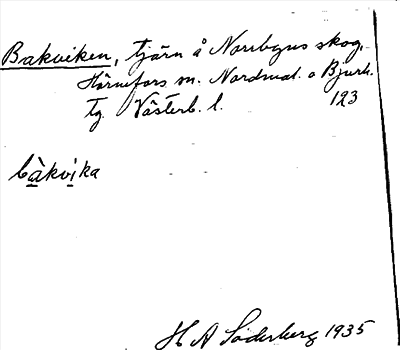 Bakviken, tjärn å Norrbyns skog,
Hörnefors sn. Nordmal. o Bjurh.
tg. Västerb. l. 123
bàkvika
H A Söderberg 1935